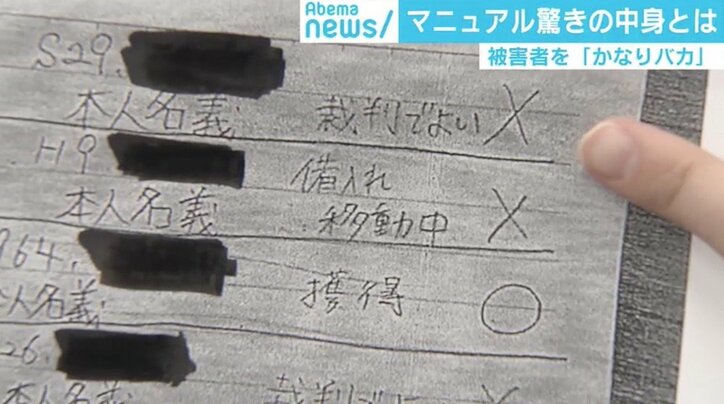 Abema
news/
マニュアル驚きの中身とは
被害者を「かなりバカ」
S29.
本人名義 裁判でよい ×
H9 借入れ
本人名義 移動中 ×
964.
人名義 獲得 ○
26.
本人名義 裁判でよ ×